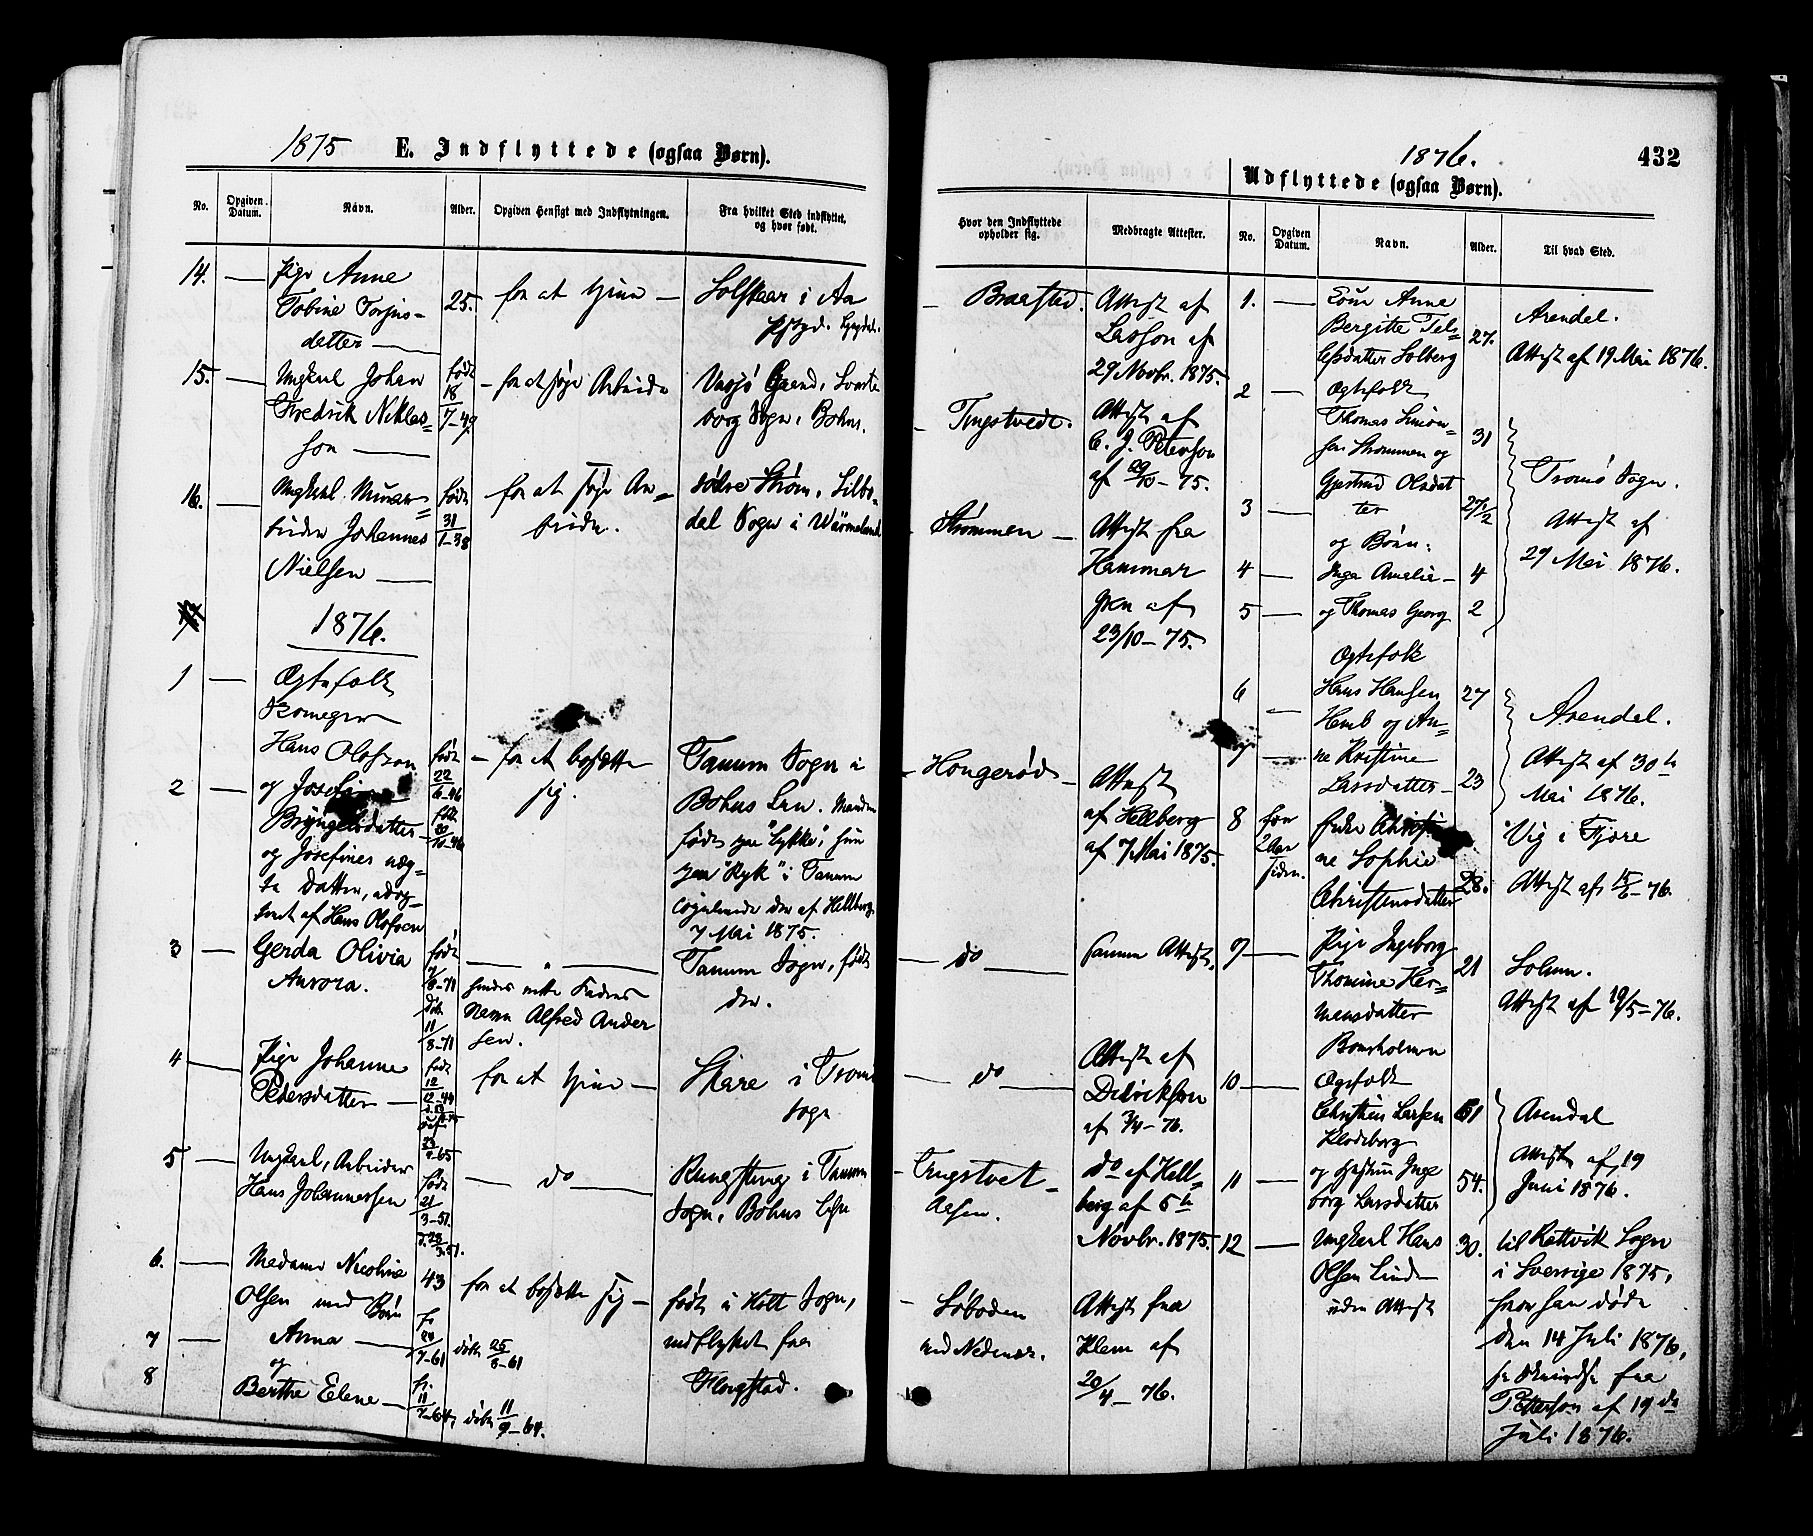 1875 E. Indflyttede (ogsaa Børn).
No. Opgiven Datum. Navn. Alder. Opgiven Hensigt med Indflytningen. Fra hvilket Sted indflyttet, og hvor født.
14. — Pige Anne
Tobine Torjus-
datter —
25.
for at tjene —
i Aa
15. — Ungkarl Johan
Fredrik Niklas-
son —
født
18
7-49.
— for at søge Arbeide
Sogn, Bohus.
16. — Ungkarl
Johannes
Nielsen —
født
31
1-38
for at søge Ar-
beide.
Søndre Strøm, Silbo-
dal Sogn i Wärmeland
1876.
1 — Ægtefolk
Hans Olofson
født
22
6-46
— for at bosætte
sig.
Tanum Sogn i
2 — og Josefine
Bryngelsdatter
og Josefines æg-
te Datter, adop-
teret af Hans Olofsen
Bohus Len. Manden
født paa "Lykke", hun
paa "Ryk" i Tanum
af Hellberg
7 Mai 1875.
3 — Gerda Olivia
Aurora.
født
7/6-71
døbt
11
8-71
— " —
Navn Alfred Ander
sen.
Tanum Sogn, født
der.
4 — Pige Johanne
Pedersdatter —
født
12
12-44
for at tjene —
Skare i Tromø
Sogn
5 — Ungkarl, Arbeider
Hans Johannessen
født
21
3-51.
— do —
i Tanum
Sogn, Bohus Len
6. — Madame Nicoline
Olsen med Børn
43
for at bosætte sig —
født i Holt Sogn,
indflyttet fra
7 — Anna —
og
7-61
døbt 25
8-61
8 Berthe Elene —
11
7-64,
døbt 11
9-64.
1876. 432
Udflyttede (ogsaa Børn).
Hvor den Indflyttede opholder sig. Medbragte Attester. No. Opgiven Datum. Navn. Alder. Til hvad Sted.
— Braastad.
Attest af
Lasson af
29 Novbr. 1875.
— Tingstvedt.
Attest af
C. J. Peterson
af 29/10-75.
— Strømmen —
Attest fra
Hammar
gren af
23/10-75.
— Hongerød —
Attest
af Hellberg
af 7 Mai 1875.
— do —
samme Attest.
— do —
Attest af
Didrikson
af 7/4-76.
— Tingstvet
do af Hell-
berg af 5te
Novbr. 1875.
— Løboden
ved Nedenæs.
Attest fra
Klem af
20/4-76.
1. — Anne
Bergitte Tel-
lefsdatter Solberg
27.
Arendal.
Attest af 19 Mai 1876.
2 — Ægtefolk
Thomas Simon-
sen Strømmen og
31
3 — Gjertrud Olsdat
ter
27 1/2
og Børn:
4 — Inga Amalie — 4
5 — og Thomas Georg 2
Tromø Sogn.
Attest af
29 Mai 1876.
Ægtefolk
6 — Hans Hansen
Henb og An-
27
7 — ne Kristine
Larsdatter — 23
Arendal.
Attest af 30te
Mai 1876.
8 for
2 Aar
siden.
ne Sophie
Christensdatter
28.
Vig i Fjære
Attest af 15/6-76.
9 — Pige Ingeborg
Thomine Her-
mansdatter
Bonsholmen
21
Attest af 19/5-76.
10 — Ægtefolk
Christen Larsen
Klodeborg
61
11 — og Hustru Inge
borg Larsdatter 54.
Arendal
Attest af 19
Juni 1876.
12 — Ungkarl Hans
Olsen Lind
uden Attest
30.
til Rättvik Sogn
i Sverrige 1875,
hvor han døde
den 14 Juli 1876,
fra
Petterson af 19de
Juli 1876.